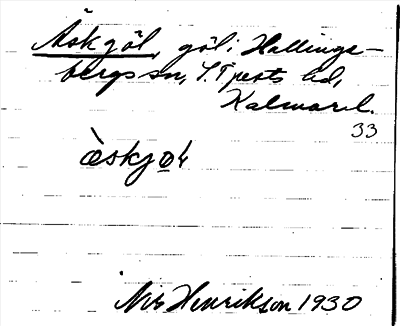 Äskgöl, göl i Hallings-
bergs sn, S. Tjusts hd,
Kalmar l.
33
àskjọ̈l
Nils Henrikson 1930